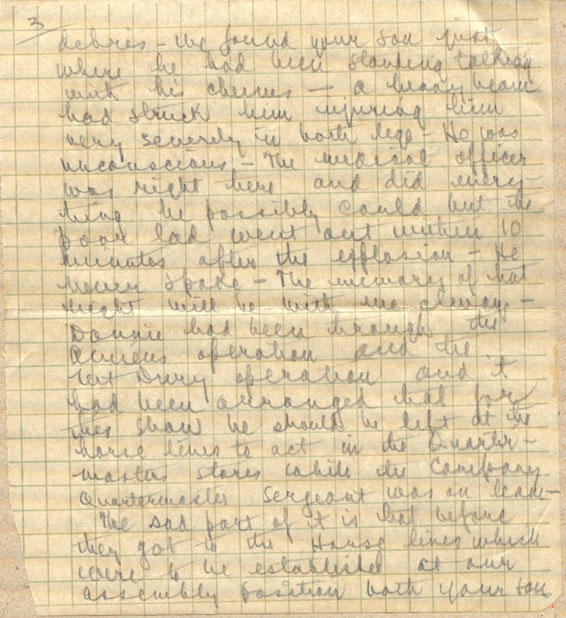 3
debris – We found your son just
where he had been standing talking
with his chums – a heavy beam
had struck him injuring him
very severely in both legs – He was
unconscious – The medical officer
was right there and did every-
thing he possibly could but the
poor lad went out within 10
minutes after the explosion – He
never spoke – The memory of that
night will be with me always –
Donnie had been through the
Amiens operation and the
Dury operation and it
had been arranged that for
this show he should be left at the
horse lines to act in the Quarter-
master stores while the Company
Quartermaster Sergeant was on leave –
The sad part of it is that before
they got to the Horse lines which
were to be established at our
assembly position both your son